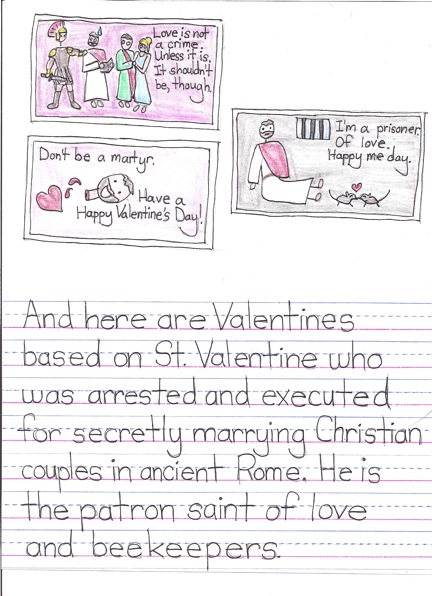 Love is not
a crime.
Unless it is.
It shouldn't
be, though.
I'm a prisoner.
Of love.
Happy me day.
Don't be a martyr.
Have a
Happy Valentine's Day!
And here are Valentines
based on St. Valentine who
was arrested and executed
for secretly marrying Christian
couples in ancient Rome. He is
the patron saint of love
and beekeepers.